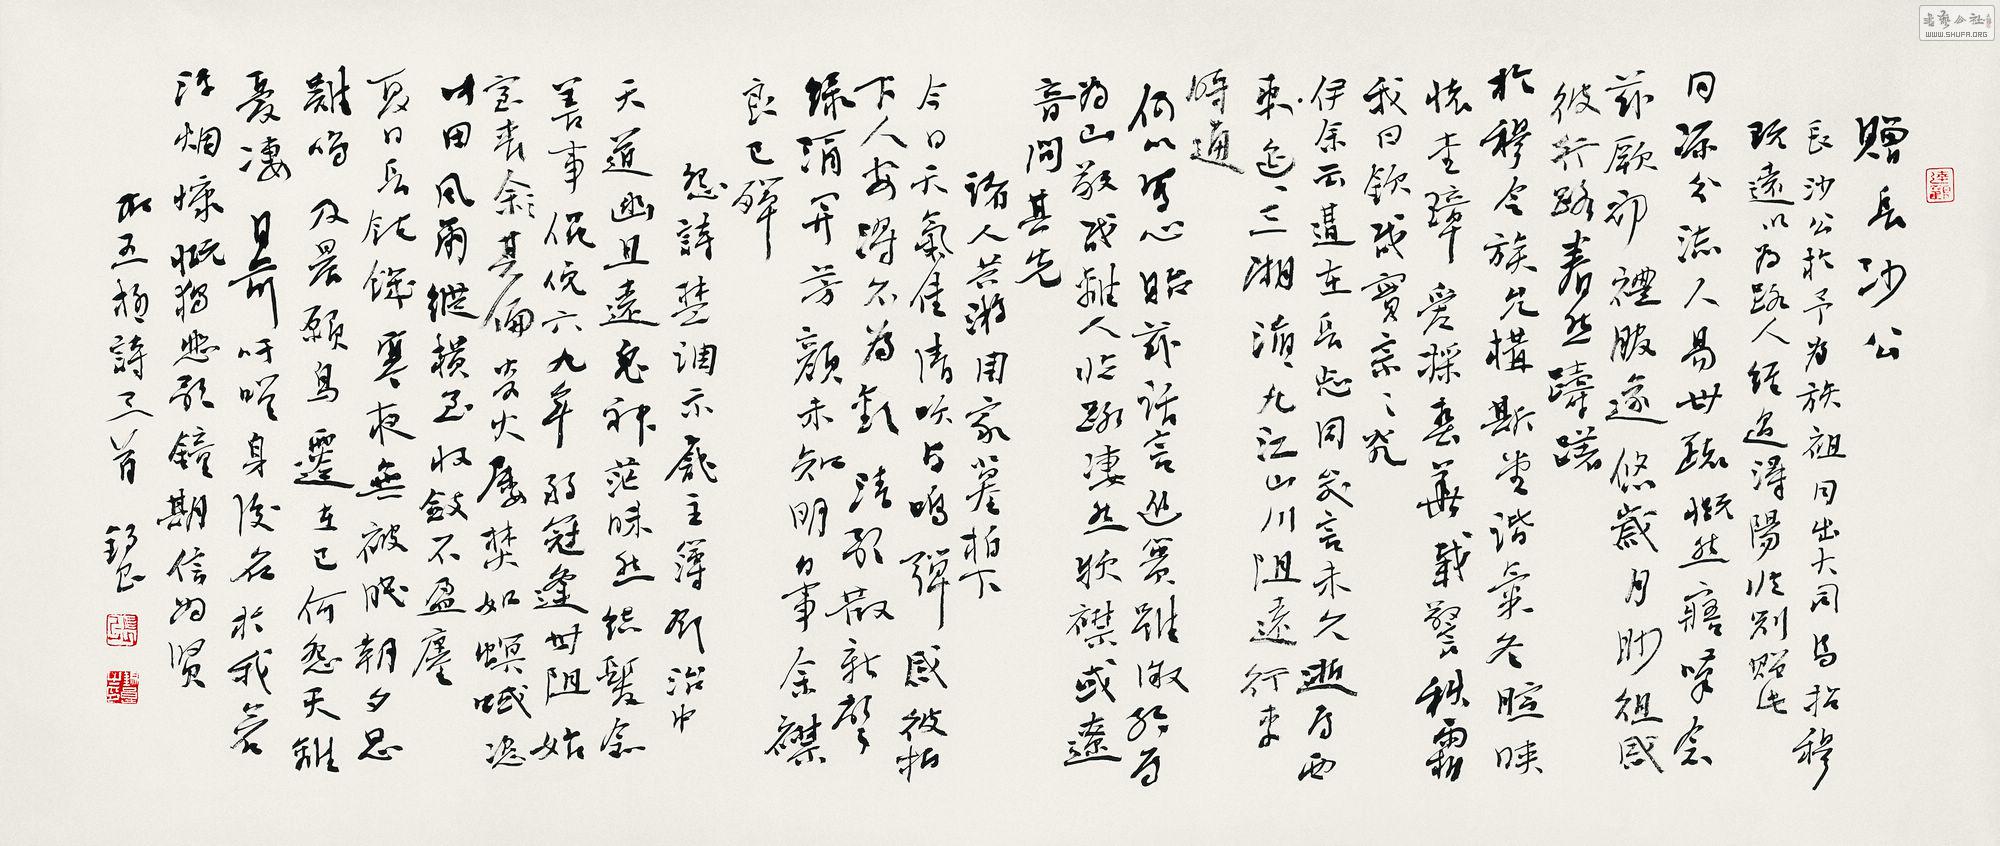 贈長沙公
長沙公於予為族祖同出大司馬昭穆
既遠以為路人經過潯陽臨別贈此
同源分流人易世疏慨然寤嘆念
茲厥初禮服遂悠歲月眇徂感
彼行路眷然躊躇
於穆令族允構斯堂諧氣冬暄映
懷圭璋爰採春華載警秋霜
我曰欽哉實宗之光
伊余云遘在長忘同笑言未久逝焉西
東遙〻三湘滔〻九江山川阻遠行李
時通
何以寫心貽茲話言進簣雖微終焉
為山敬哉離人臨路淒然款襟或遼
音問其先
諸人共游周家墓柏下
今日天氣佳清吹與鳴彈感彼柏
下人安得不為歡清歌散新聲
綠酒開芳顏未知明日事余襟
良已殫
怨詩楚調示龐主簿鄧治中
天道幽且遠鬼神茫昧然結髮念
善事僶俛六九年弱冠逢世阻始
室喪餘其偏炎火屢焚如螟蜮恣
中田風雨縱橫至收斂不盈廛
夏日長抱饑寒夜無被眠朝夕思
雞鳴及晨願烏遷在己何怨天離
憂淒目前吁嗟身後名於我若
浮煙慷慨獨悲歌鐘期信為賢
五柳詩三首
書藝公社
WWW.SHUFA.ORG